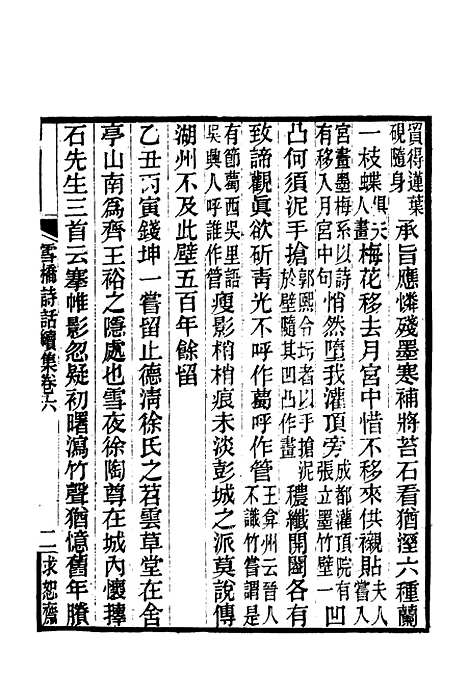 買得蓮葉硯隨身承旨應憐殘墨寒補將苔石看猶溼六種蘭
一枝蝶俱天人畫梅花移去月宮中惜不移來供襯貼夫人嘗入
宮畫墨梅系以詩有移入月宮中句悄然墮我灌頂旁成都灌頂院有張立墨竹壁一凹
凸何須泥手搶郭熙令圬者以手搶泥於壁隨其凹凸作畫穠纖開闔各有
致諦觀眞欲斫青光不呼作葛呼作管王弇州云晉人不識竹嘗謂是
有節葛西吳里語吳興人呼誰作管瘦影梢梢痕未淡彭城之派莫說傳
湖州不及此壁五百年餘留
乙丑丙寅錢坤一嘗留止德清徐氏之苕雲草堂在舍
亭山南爲齊王裕之隱處也雪夜徐陶尊在城內懷擇
石先生三首云搴帷影忽疑初曙瀉竹聲猶憶舊年賸
雪橋詩話續集卷六
二
求恕齋